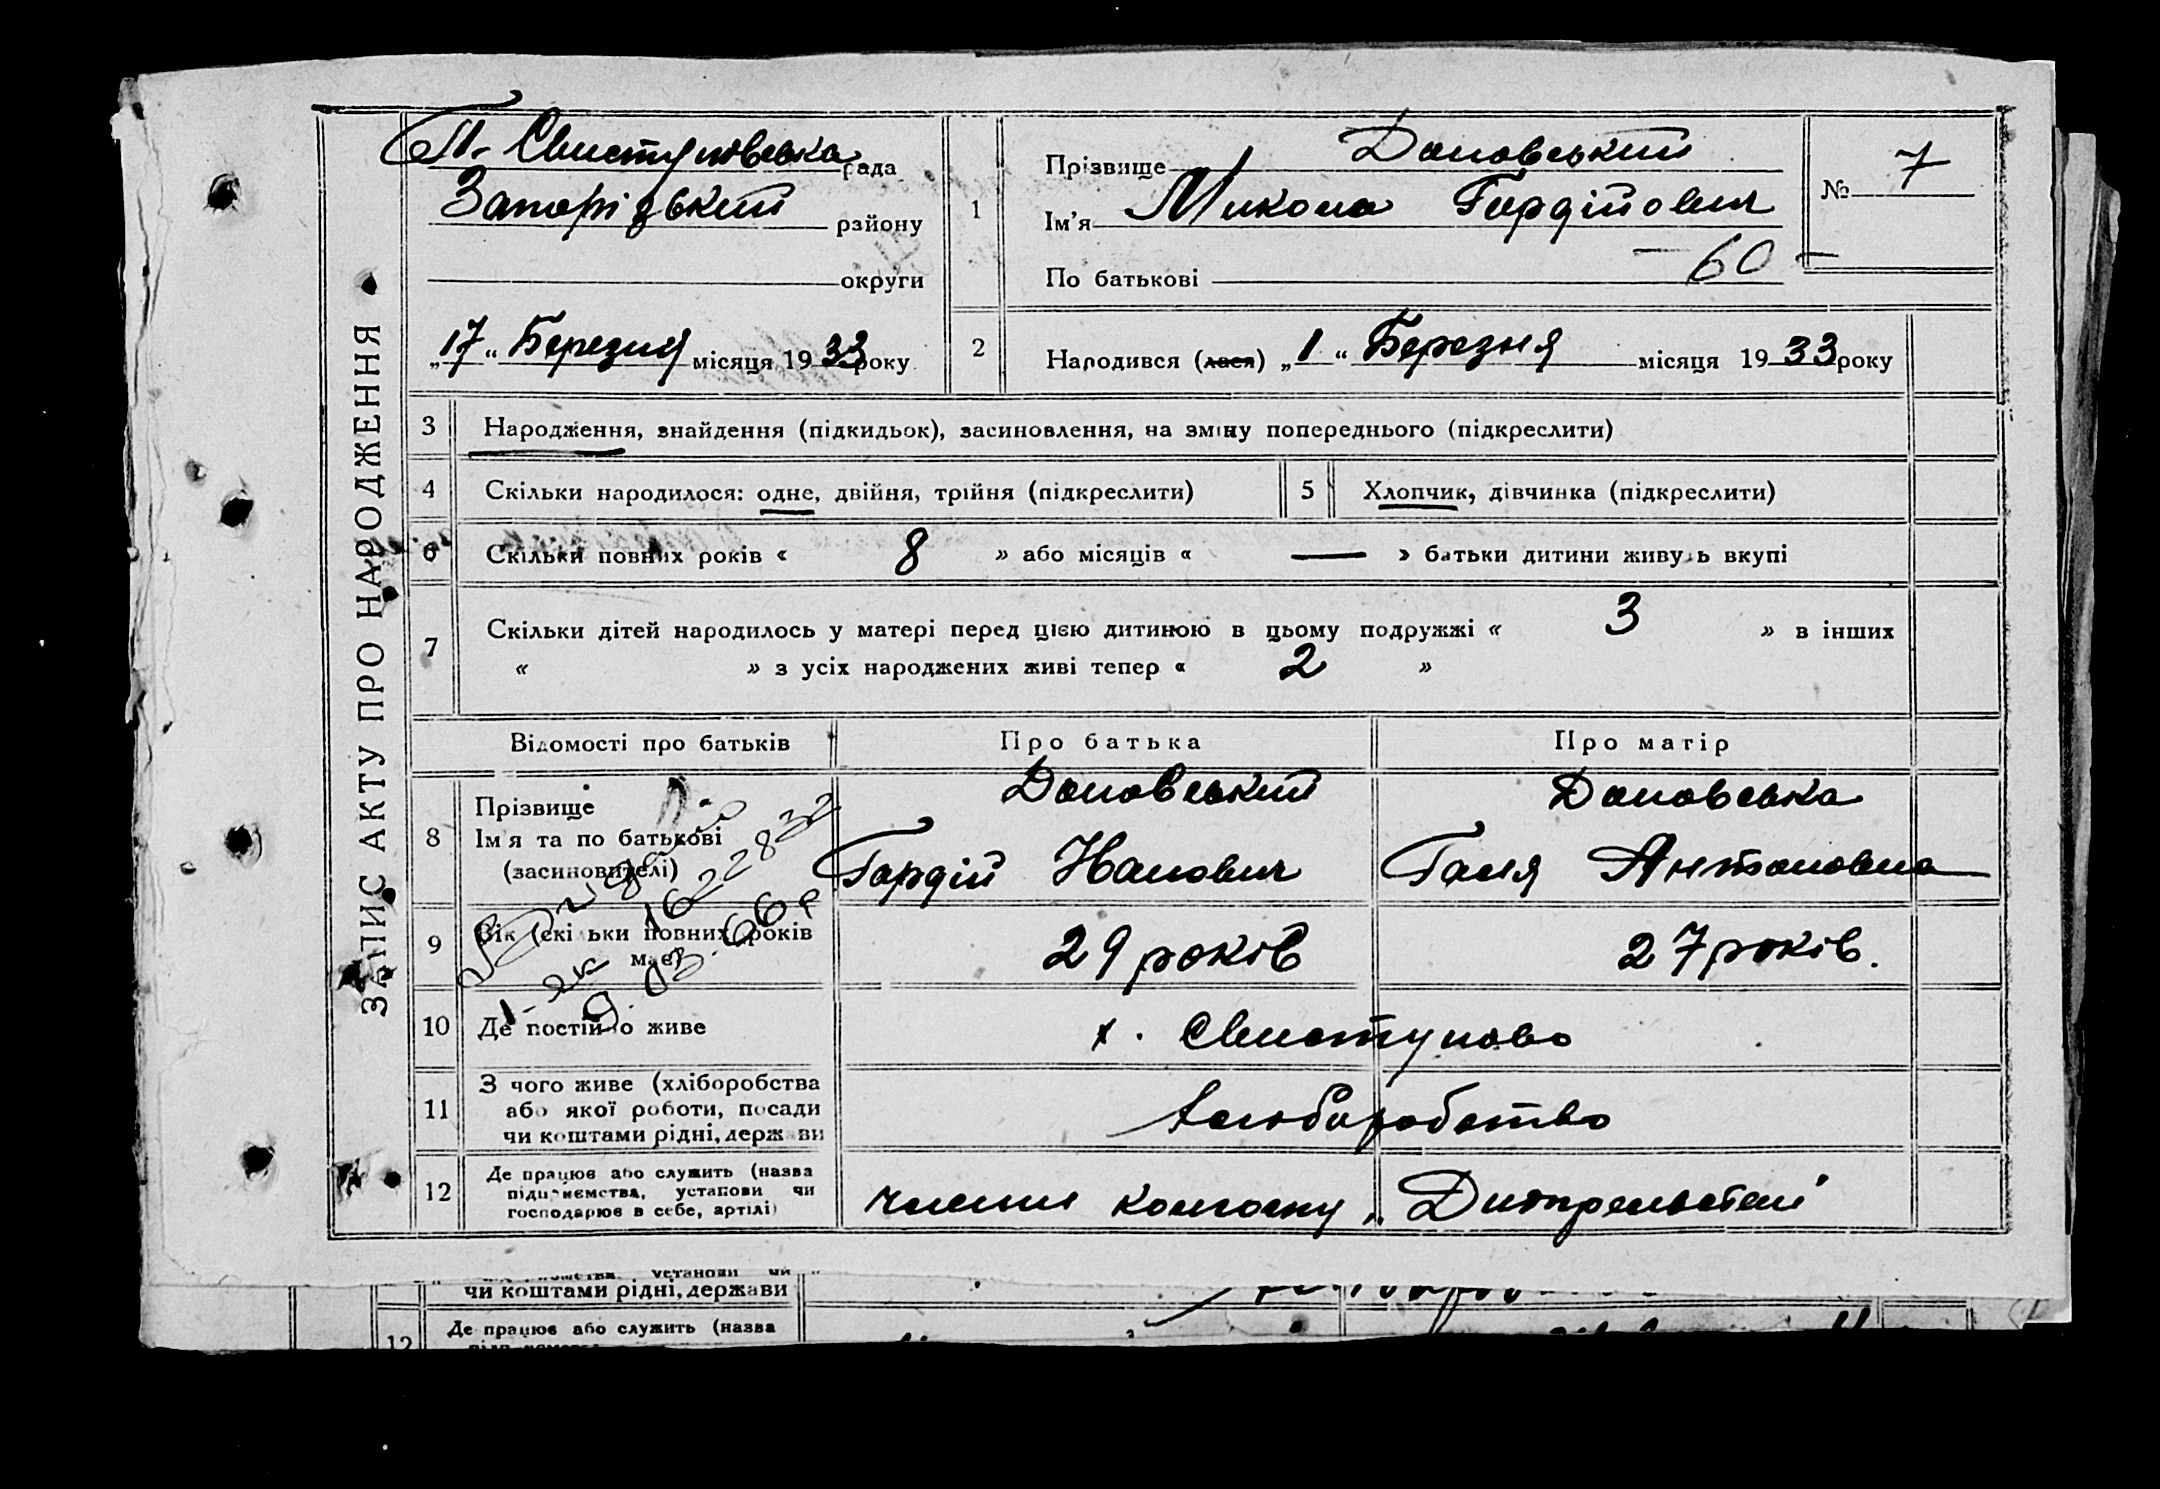 ЗАПИС АКТУ ПРО НАРОДЖЕННЯ
П. Свистунівська рада
Запорізький району
округи
„17“ Березня місяця 1933 року
1
Прізвище Доновський
Ім'я Микола Гордійович
По батькові
— 60 —
№ 7
2
Народився (лася) „1“ Березня місяця 1933 року
3 Народження, знайдення (підкидьок), засиновлення, на зміну попереднього (підкреслити)
4 Скільки народилося: одне, двійня, трійня (підкреслити)
5 Хлопчик, дівчинка (підкреслити)
6 Скільки повних років « 8 » або місяців « — » батьки дитини живуть вкупі
7 Скільки дітей народилось у матері перед цією дитиною в цьому подружжі « 3 » в інших
« » з усіх народжених живі тепер « 2 »
Відомості про батьків Про батька Про матір
8 Прізвище
Ім'я та по батькові
(засиновителі)
Доновський
Гордій Іванович
Доновська
Ганя Антоновна
9 Вік (скільки повних років
має)
29 років
27 років.
10 Де постійно живе
х. Свистуново
11 З чого живе (хліборобства
або якої роботи, посади
чи коштами рідні, держави
хліборобство
12 Де працює або служить (назва
підприємства, установи чи
господарює в себе, артілі)
члени колгоспу „
установи чи
чи коштами рідні, держави
12 Де працює або служить (назва